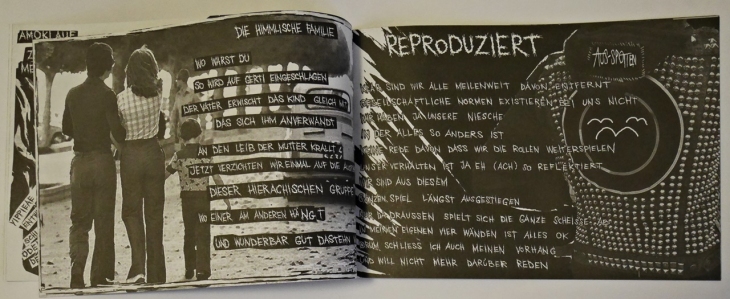 AMOKLAUF
DIE HIMMLISCHE FAMILIE
WO WARST DU
SO WIRD AUF GERTI EINGESCHLAGEN
DER VATER ERWISCHT DAS KIND GLEICH MIT
DAS SICH IHM ANVERWANDT
AN DEN LEIB DER MUTTER KRALLT &
JETZT VERZICHTEN WIR EINMAL AUF DIE
DIESER HIERACHISCHEN GRUPPE
WO EINER AM ANDEREN HÄNGT
UND WUNDERBAR GUT DASTEHN
REPRODUZIERT
AUS-SPOTTEN
SIND WIR ALLE MEILENWEIT DAVON ENTFERNT
GESELLSCHAFTLICHE NORMEN EXISTIEREN BEI UNS NICHT
HABEN JA UNSERE NIESCHE
DER ALLES SO ANDERS IST
REDE DAVON DASS WIR DIE ROLLEN WEITERSPIELEN
UNSER VERHALTEN IST JA EH (ACH) SO REFLEKTIERT
SIND AUS DIESEM
GANZEN SPIEL LÄNGST AUSGESTIEGEN
DA DRAUSSEN SPIELT SICH DIE GANZE SCHEISSE AB
MEINEN EIGENEN VIER WÄNDEN IST ALLES OK
SCHLIESS ICH AUCH MEINEN VORHANG
WILL NICHT MEHR DARÜBER REDEN